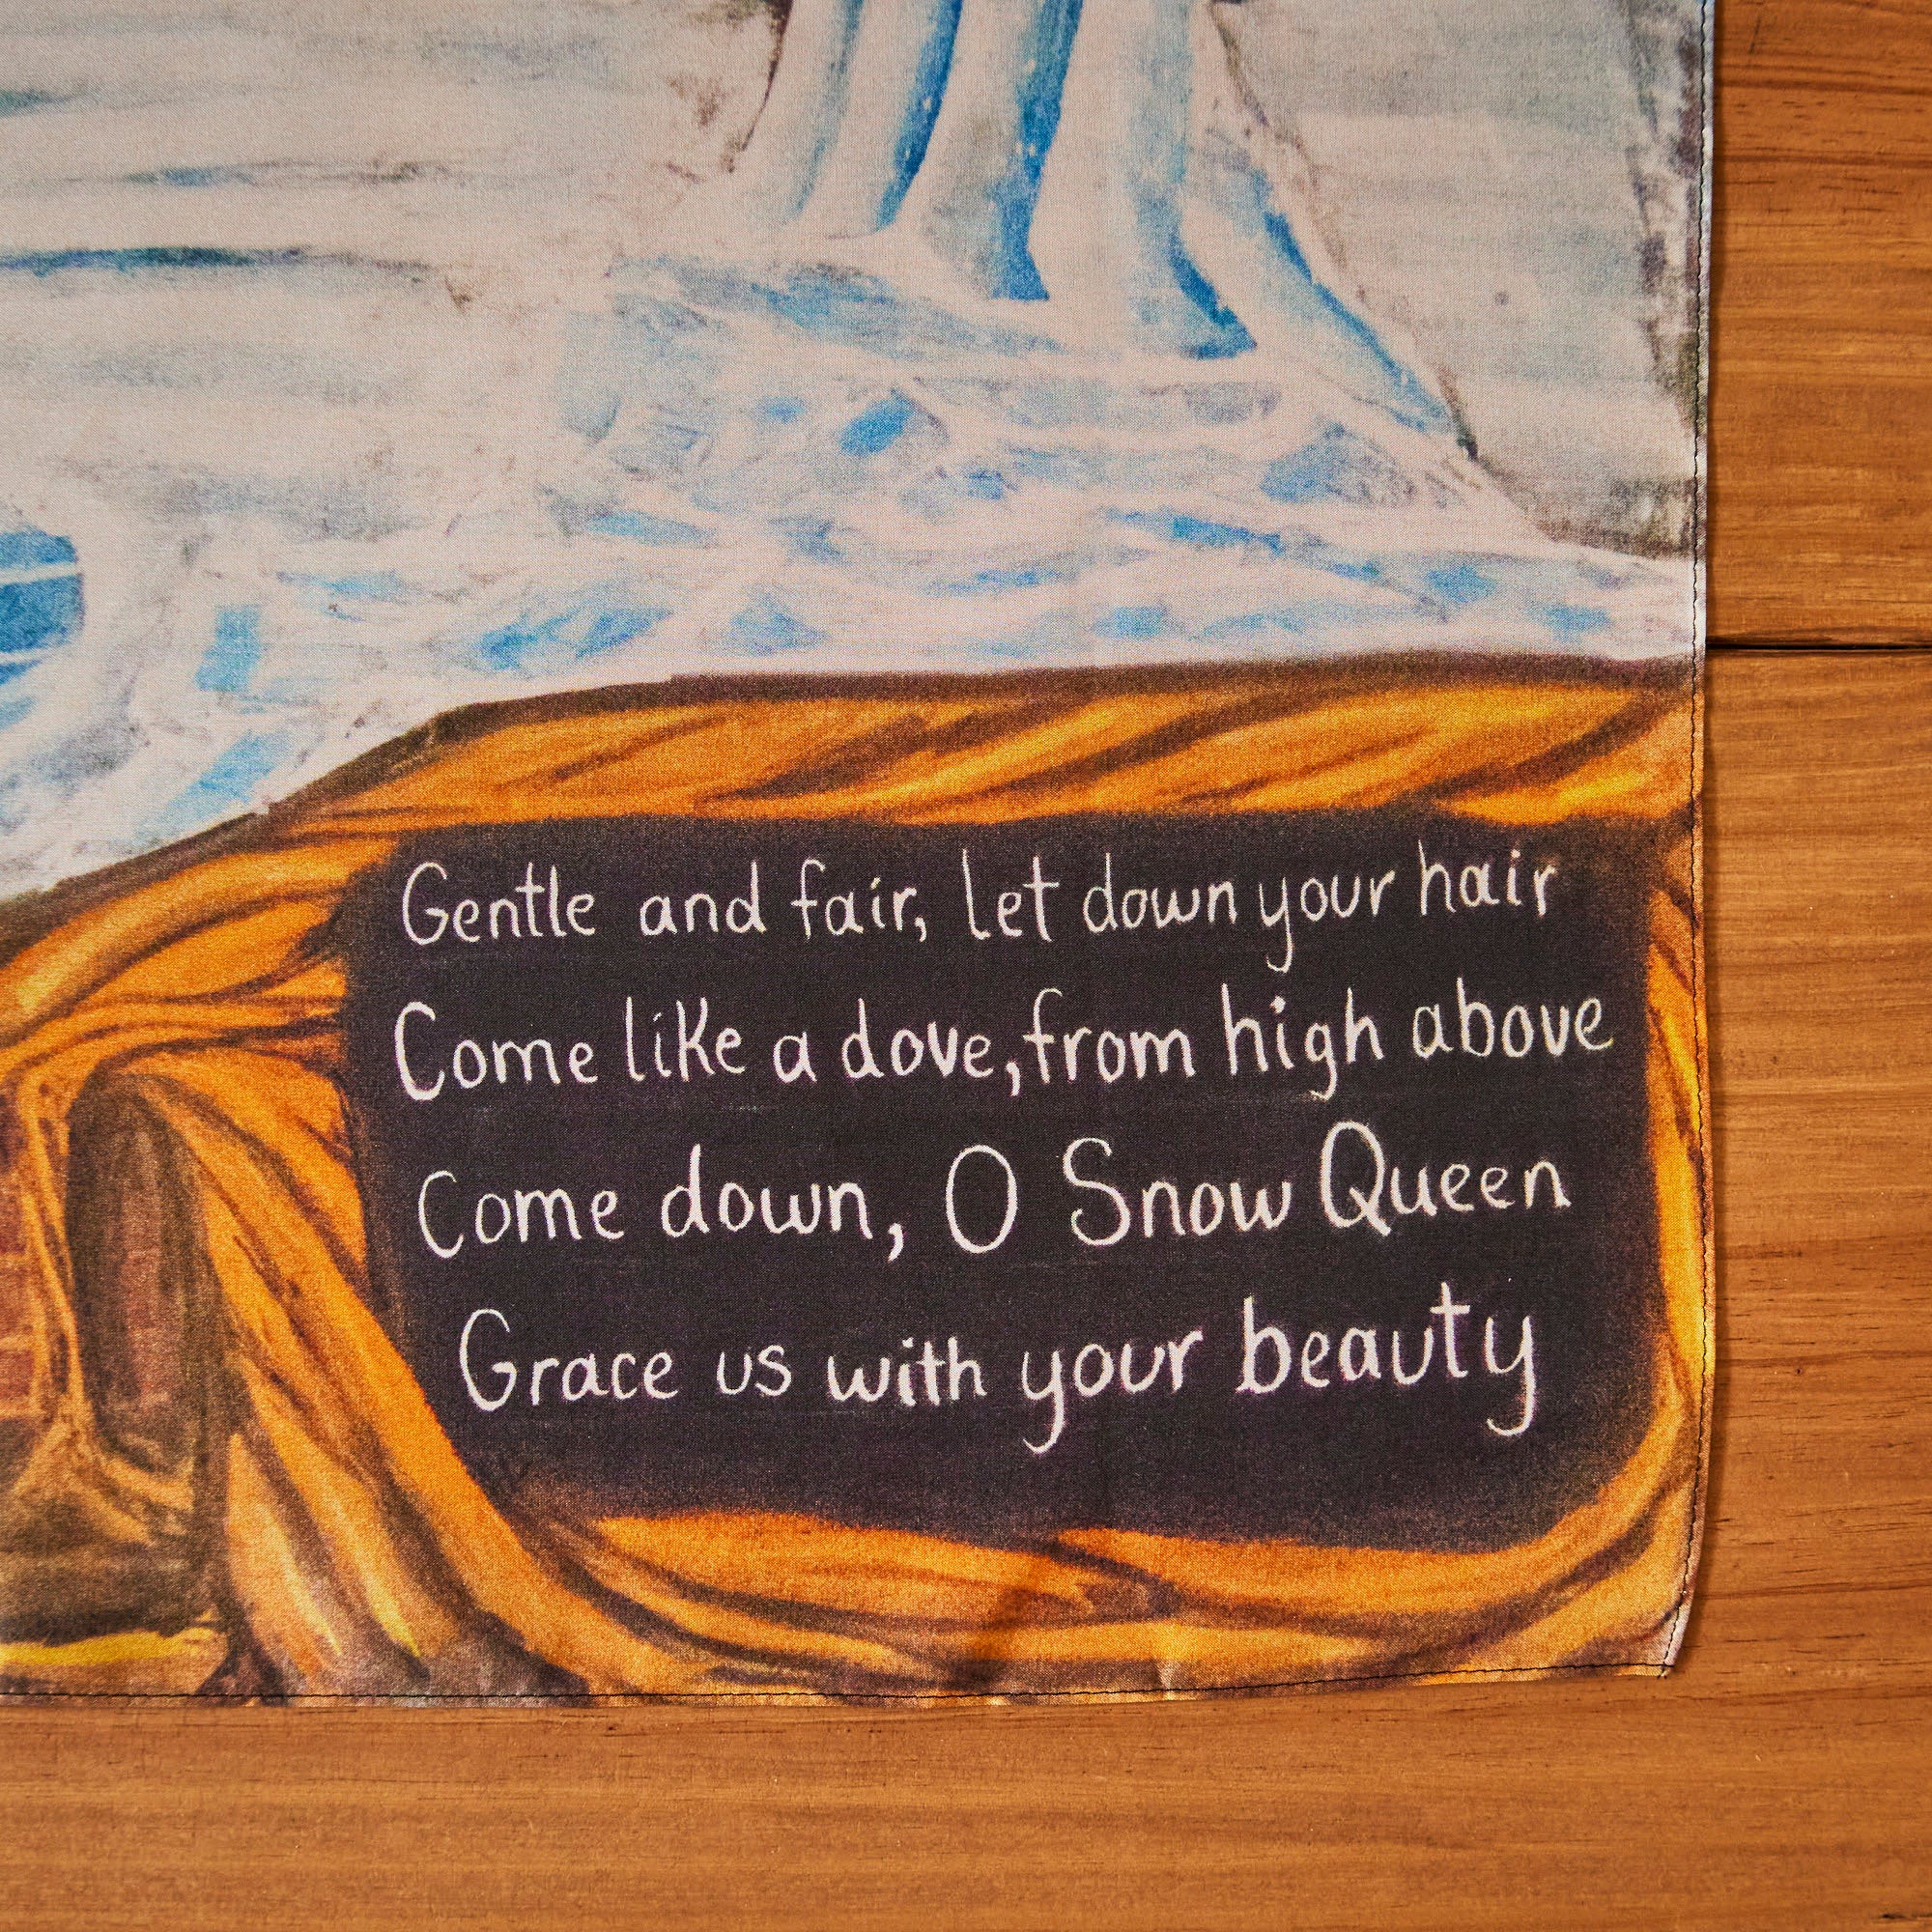 Gentle and fair, let down your hair
Come like a dove, from high above
Come down, O Snow Queen
Grace us with your beauty